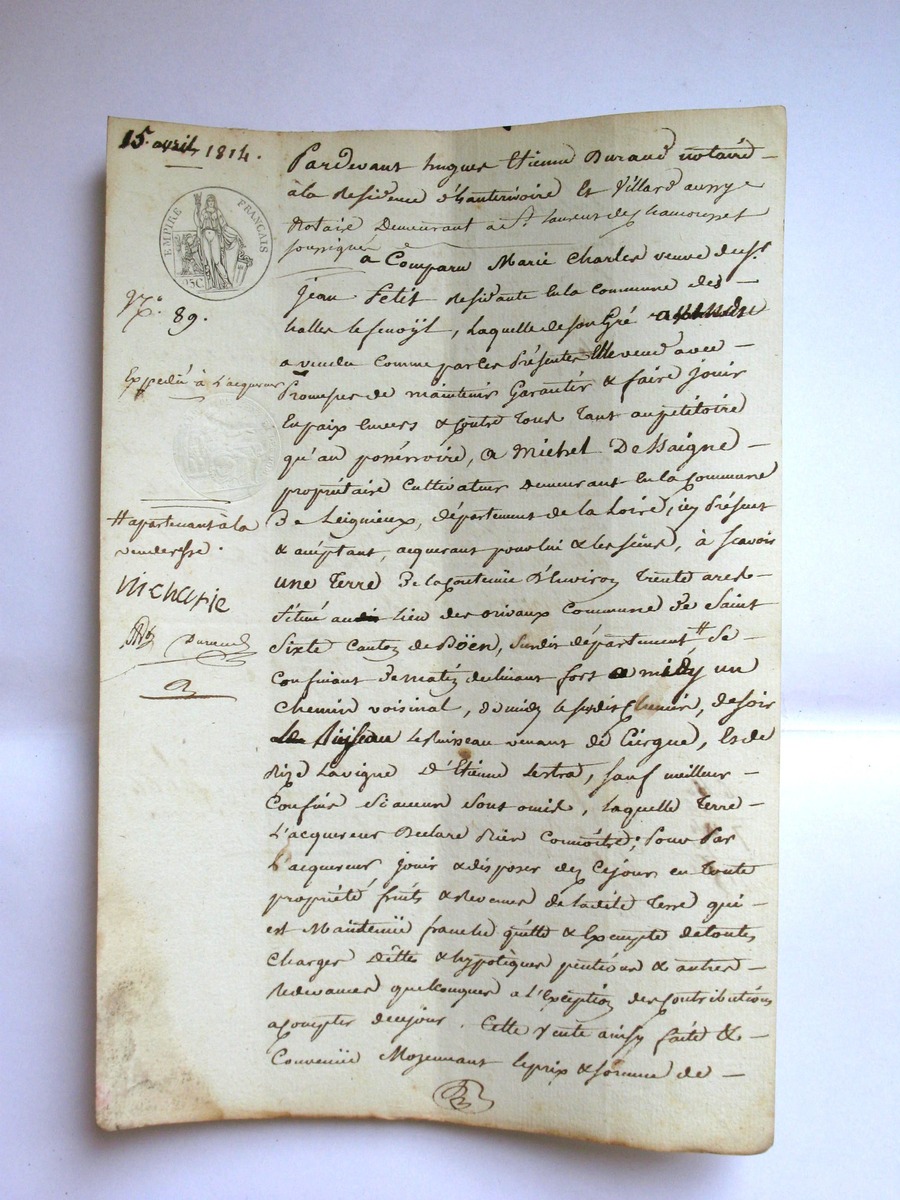 15. avril 1814.
EMPIRE FRANÇAIS
25C
N.° 89.
Expedié à L'acquereur
# apartenant à la
venderesse.
Durand
Pardevant hugues Etienne Durand notaire
à la Residence d'hauterivoire Et Villard aussy
Notaire Demeurant à St. laurent de chamousset
soussignés
a Comparu Marie Charles veuve du sr.
jean Petit Residante En la Commune des
halles le fenoÿl, Laquelle de son Gré
a vendu Comme par Ces Présentes Elle vend avec
Promesses de maintenir Garantir & faire jouir
En paix Envers & Contre Tous Tant au petitoire
qu'au possessoire, a Michel Dessaigne
propriétaire Cultivateur Demeurant En la Commune
De Leignieux, département de la Loire, icy Présent
& acceptant, acquerant pour lui & les siens, à Scavoir
une Terre De la Contenüe D'Environ Trente ares
Située au Lieu des rivaux Commune De Saint
Sixte Canton de Böen, susdit département # Se
Confinant De matin
Chemin voisinal, de midy le susdit Chemin, de soir
Le Ruisseau venant de Ciergue, Et de
Bize La vigne D'Etienne Lestra, sauf meilleurs
Confins Si aucuns sont omis, laquelle Terre
L'acquereur Declare Bien Connoître; Pour Par
L'acquereur, jouir & disposer dez Cejour en Toute
propriété, fruits & Revenus de ladite Terre qui
est Maintenüe franche quitte & Exempte de toutes
Charges Dettes & hypotèques pentions & autres
Redevances quelconques a L'Exception des Contributions
a Compter de cejour. Cette Vente ainsy faite &
Convenüe Moyennant le prix & somme de